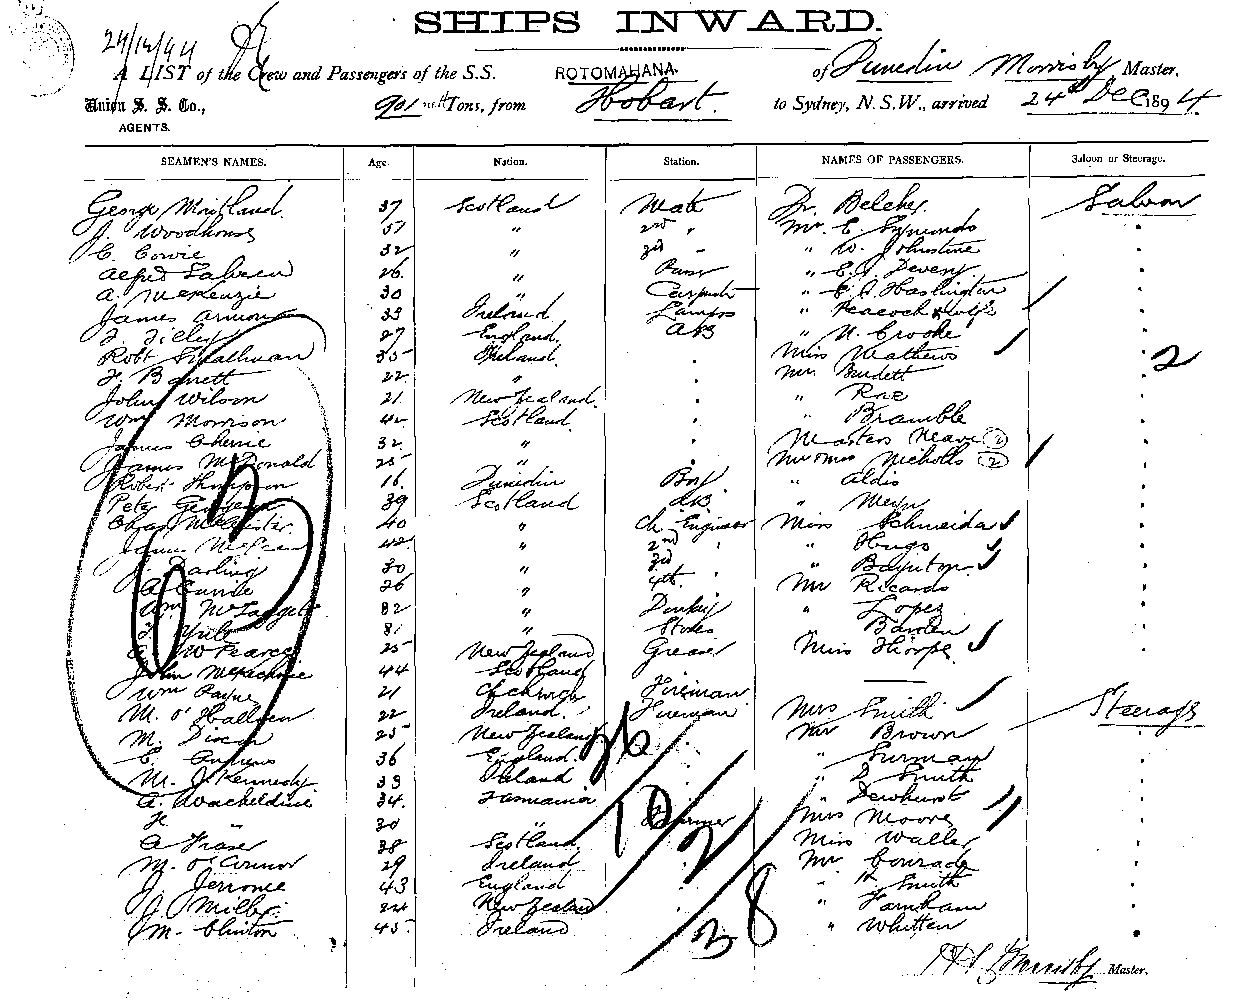 SHIPS INWARD.
24/12/94
A LIST of the Crew and Passengers of the S.S. ROTOMAHANA. of Dunedin Morrisby Master.
Union S. S. Co., 901 Tons, from Hobart. to Sydney, N. S. W., arrived 24th Dec 1894
AGENTS.
SEAMEN'S NAMES. Age. Nation. Station. NAMES OF PASSENGERS. Saloon or Steerage.
George Maitland 37 Scotland Mate Dr. Belcher Saloon
J. Woodhouse 51 " 2nd " Mr E. Symonds
C. Cowie 32 " 3rd " " W. Johnstone
Alfred 26 " " Devery
A. McKenzie 30 " Carpenter " Haslington
James 33 Ireland Lamps " Peacock & Wolfe
F. Tilley 27 England AB " N. Crooke
Robt Smallman 35 Ireland Miss Mathews
F. Barrett 22 " Mr Burdett 2
John Wilson 21 New Zealand. " Rae
Wm Morrison 42 Scotland. " Bramble
James Cherrie 32 " Masters Neave (2)
James McDonald 25 " Mr & Mrs Nicholls (2)
Robert Thompson 16 Dunedin Boy " Aldis
Peter 39 Scotland AB "
Chas 40 " Ch. Engineer Miss Schneider
James McLean 42 " 2nd " " Hugo
Darling 30 " 3rd " Boynton
A. Currie 26 " 4th " Mr Ricards
Wm McTaggart 32 " Donkey " Lopez
F. 31 " Stores "
W Pearce 25 New Zealand Greaser Miss Thorpe
John McKechnie 44 Scotland
Wm Payne 21 Fireman
M. O'Halloran 22 Ireland. Fireman Mrs Smith Steerage
M. Dixon 25 New Zealand Mr Brown
C. Andrews 36 England " Surman
M. J. Kennedy 33 Ireland " D. Smith
A. 34. Tasmania " Dewhurst
H " 30 Mrs Moore
A Fraser 38 Scotland Miss Waller
M. O'Connor 29 Ireland Mr Conrade
J. Jerrome 43 England " Smith
J. Milby 24 New Zealand " Farnham
M. Clinton 45 Ireland " Whitten
26
10
2
38
Master.